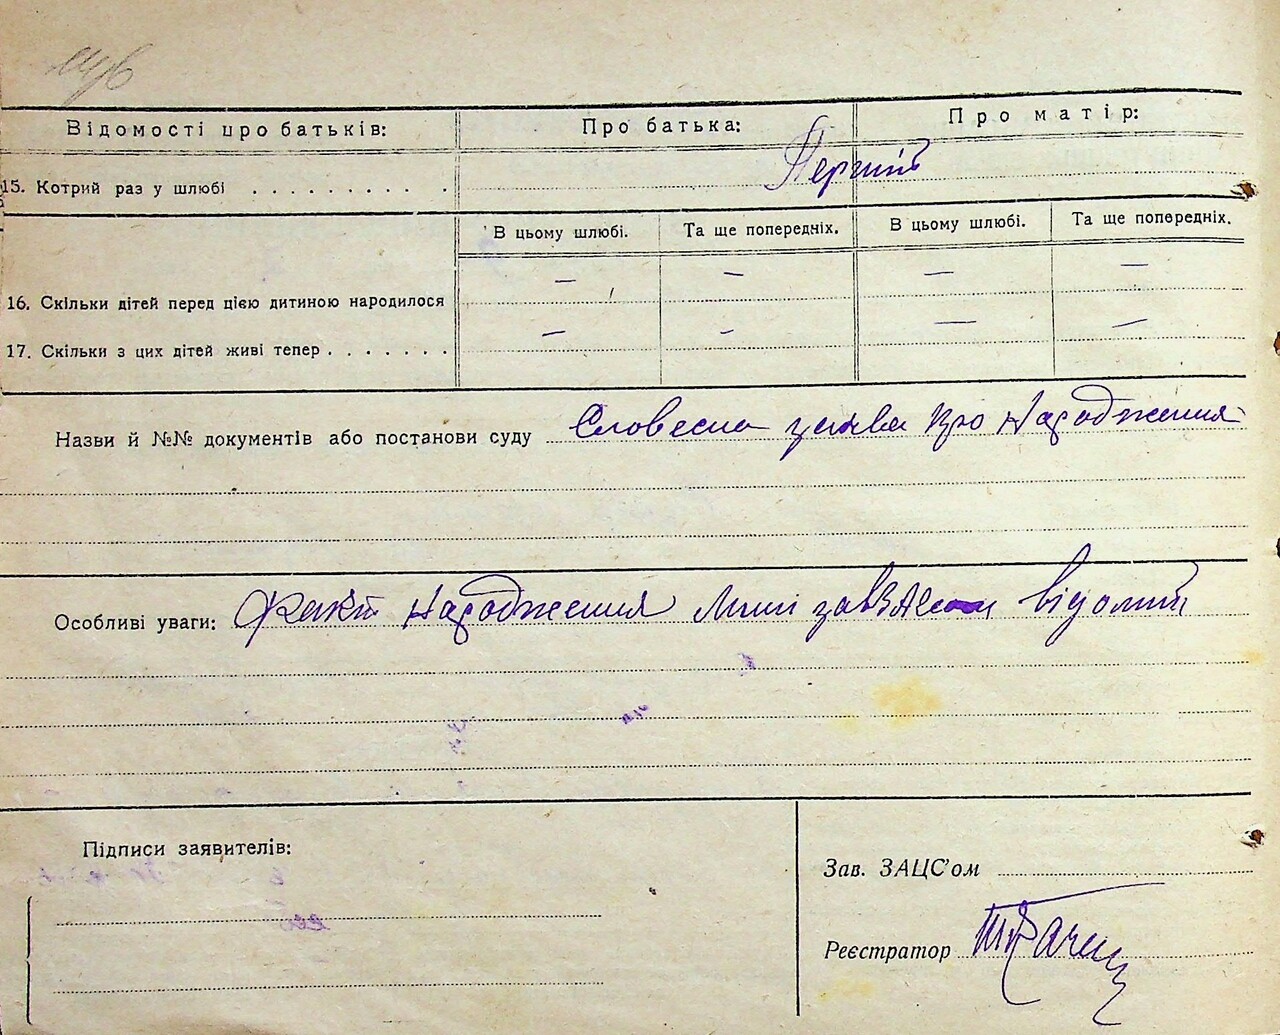 Відомості про батьків: Про батька: Про матір:
15. Котрий раз у шлюбі . . . . . . . . . . Перший
В цьому шлюбі. Та ще попередніх. В цьому шлюбі. Та ще попередніх.
— — — —
16. Скільки дітей перед цією дитиною народилося
— — — —
17. Скільки з цих дітей живі тепер . . . . . . .
Назви й №№ документів або постанови суду Словесна заява про народження
Особливі уваги: Факт народження мині відомий
Підписи заявителів:
Зав. ЗАЦС'ом
Реєстратор